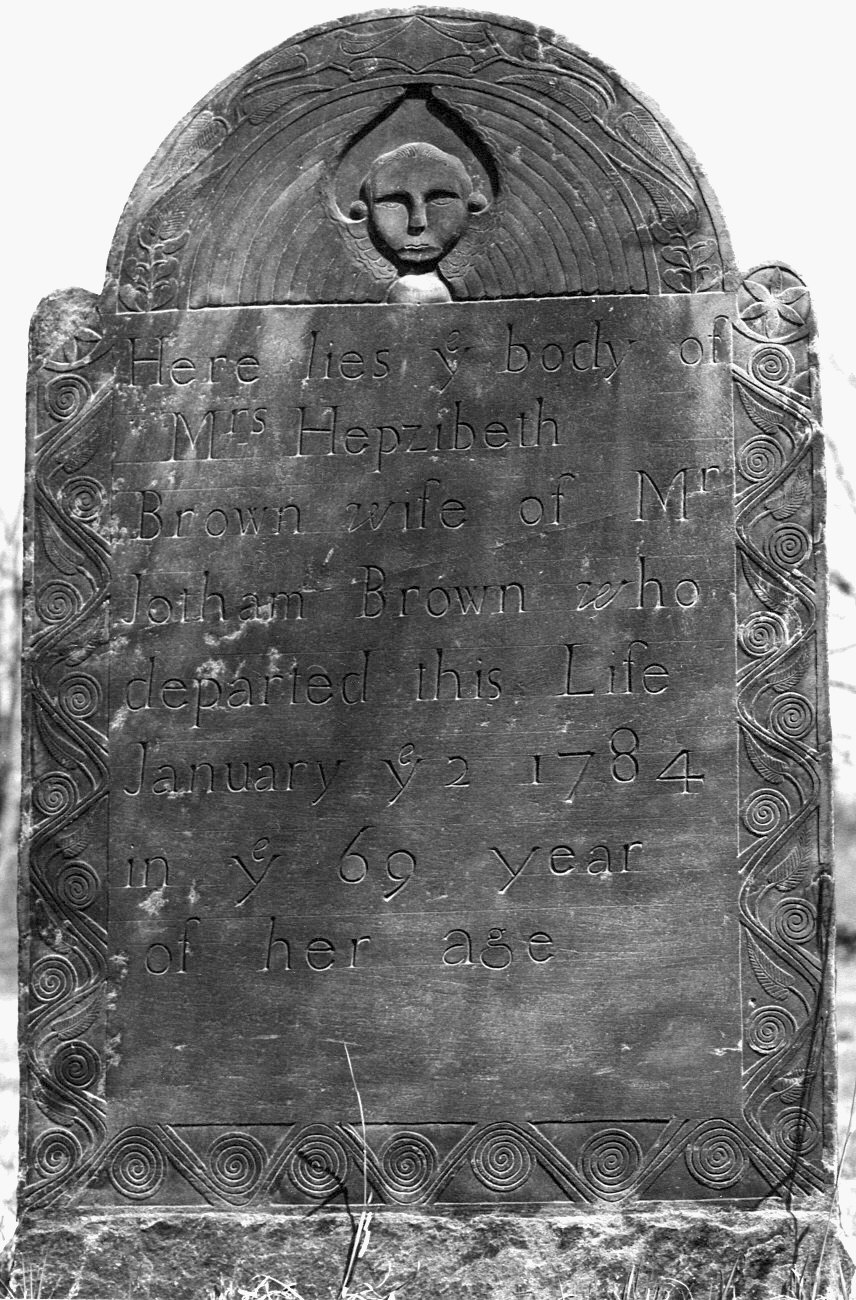 Here lies yͤ body of
Mrs Hepzibeth
Brown wife of Mr
Jotham Brown who
departed this Life
January yͤ 2 1784
in yͤ 69 year
of her age